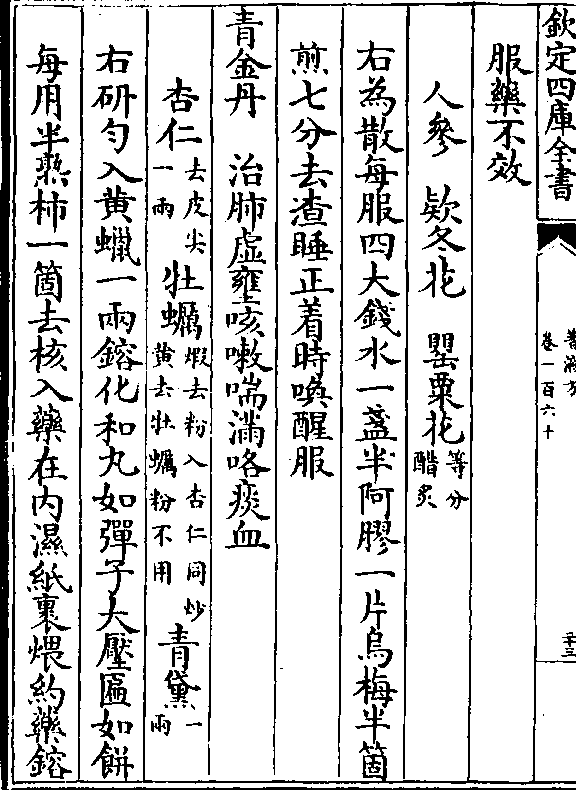 欽定四庫全書
卷一百六十
服藥不效
人參 欵冬花 罌粟花等分醋炙
右為散每服四大錢水一盞半阿膠一片烏梅半箇
煎七分去渣睡正着時喚醒服
青金丹 治肺虛壅咳嗽喘滿咯痰血
杏仁去皮尖一兩 牡蠣煅去粉入杏仁同炒黄去牡蠣粉不用 青黛一兩
右研勻入黄蠟一兩鎔化和丸如彈子大壓匾如餅
每用半熟柿一箇去核入藥在内濕紙裹煨約藥鎔